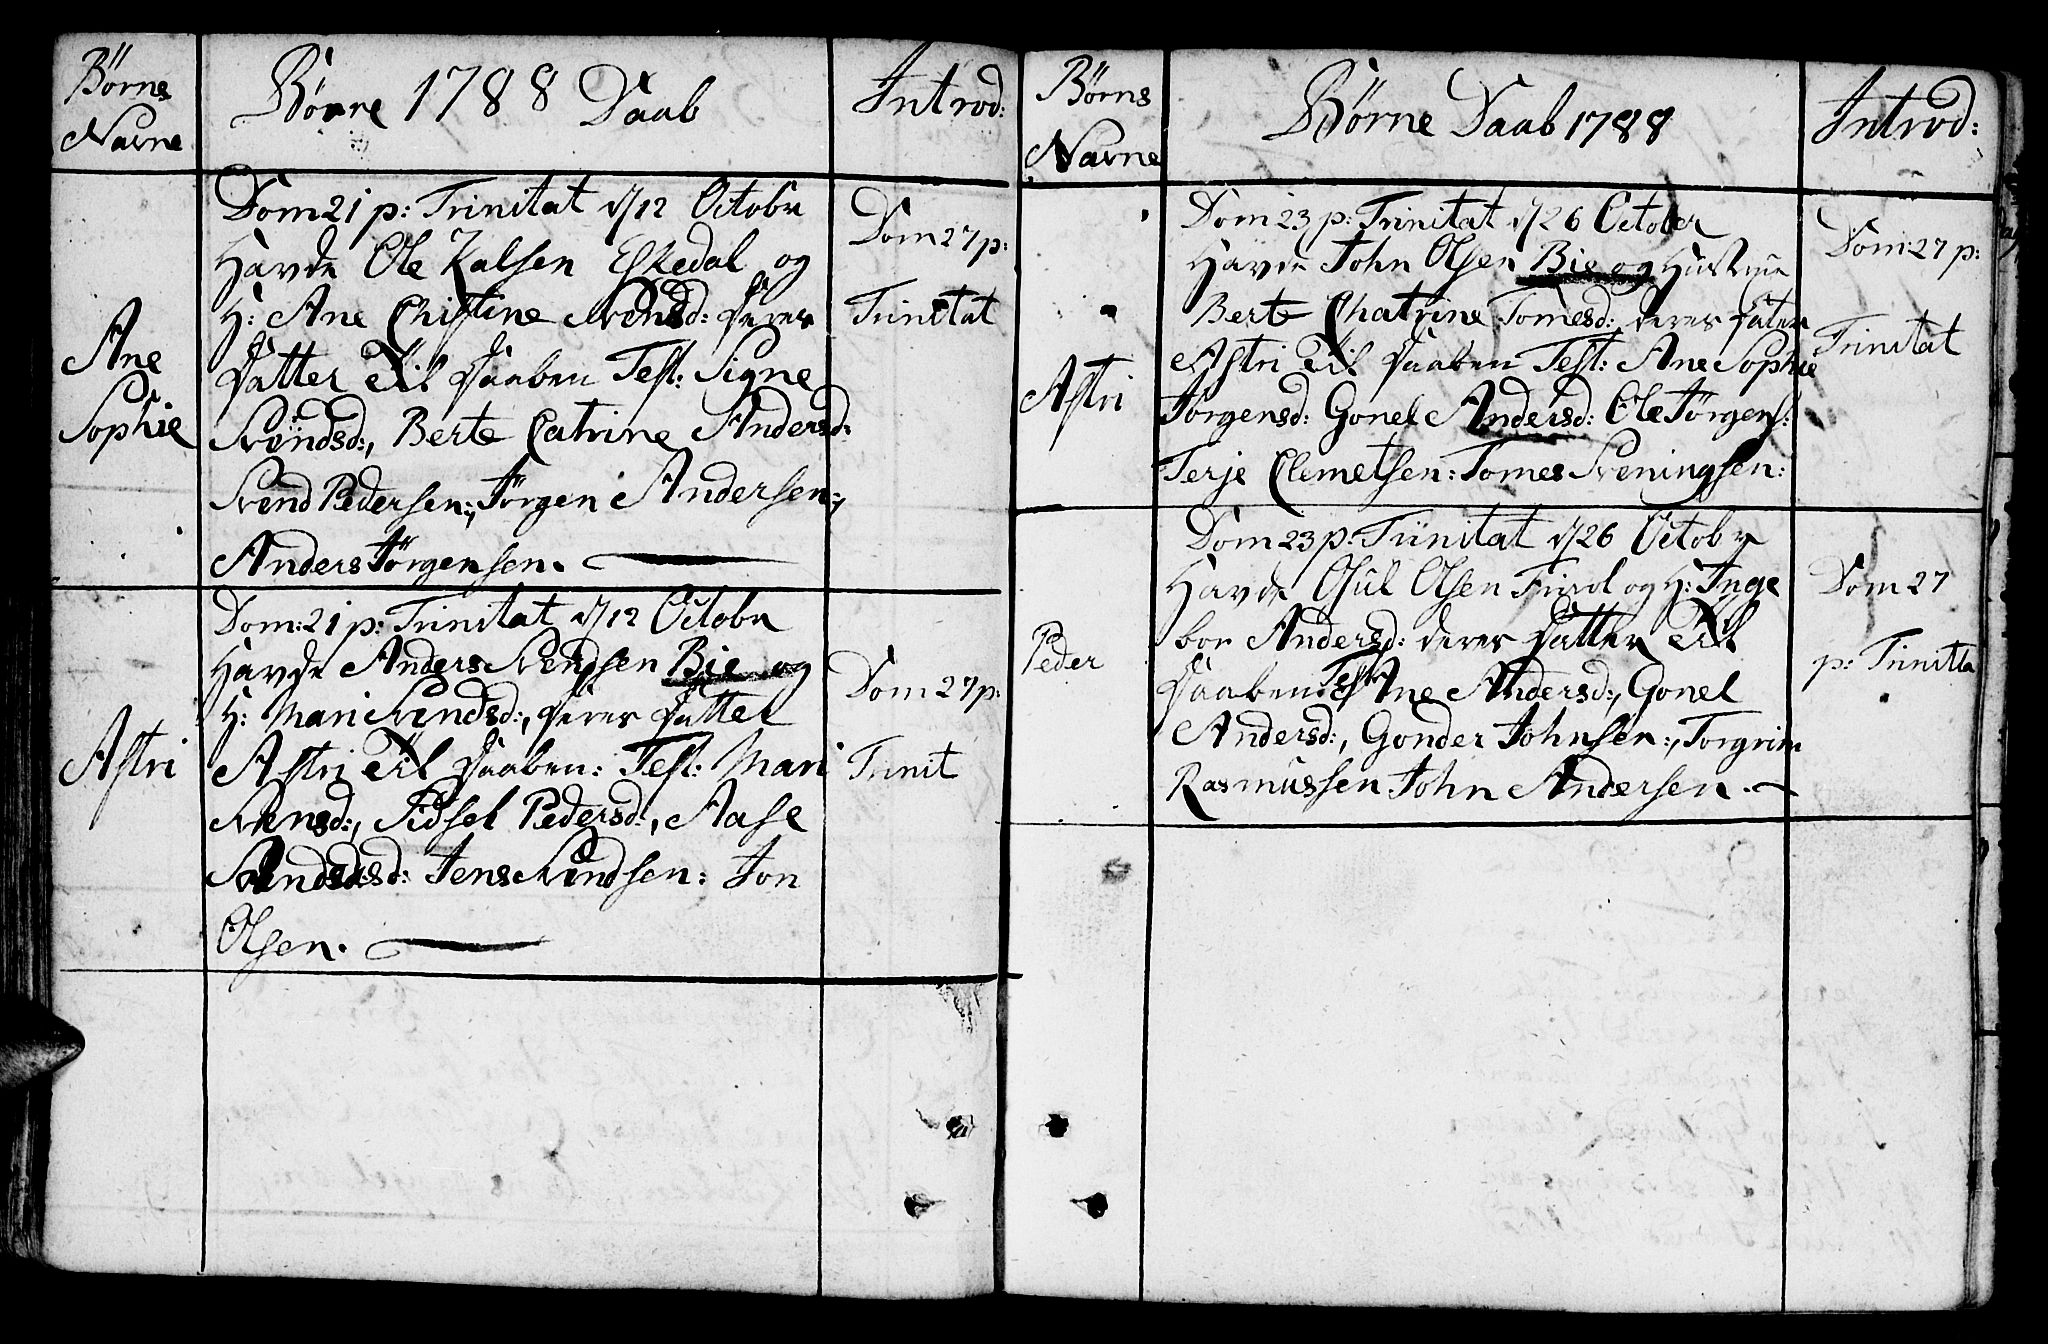 Børne
Navne
Børne 1788 Daab
Introd:
Dom 21 p: Trinitat d/12 Octobr
Havde Ole Kalsen Eskedal og
H: Ane Christine Svensd: deres
Datter Til Daaben Test: Signe
Svendsd:, Berte Catrine Andersd:
Svend Pedersen:, Jörgen Andersen:,
Anders Jörgensen.
Ane
Sophie
Dom 27 p:
Trinitat
Dom: 21 p: Trinitat d/12 Octobr
Havde Anders Svendsen Bie og
H: Mari Svendsd:, deres Datter
Astri Til Daaben: Test: Mari
Svensd:, Sidsel Pedersd:, Aase
Svendsd: Jens Svendsen: Jon
Olsen.
Astri
Dom 27 p:
Trinit
Børns
Navne
Børne Daab 1788
Introd:
Dom 23 p: Trinitat d/26 October
Havde John Olsen Bie og Hustrue
Berte Chatrine Tomesd: deres Dater
Astri Til Daaben Test: Ane Sophie
Jörgensd: Gonel Andersd: Ole Jörgens:
Terje Clemetsen: Tomes Sveningsen:
Astri
Dom 27 p:
Trinitat
Dom 23 p: Trinitat d/26 Octobr
Havde Osul Olsen og H: Inge
bor Andersd: deres Datter Til
Daaben Test: Ane Andersd:, Gonel
Andersd:, Gonder Johnsen:, Torgrim
Rasmussen John Andersen.
Peder
Dom 27
p: Trinitta